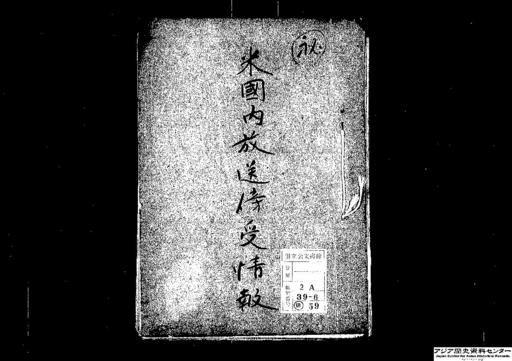 秘
米國内放送傍受情報
国立公文書館
2A
39-6
59
アジア歴史資料センター
Japan Center for Asian Historical Records